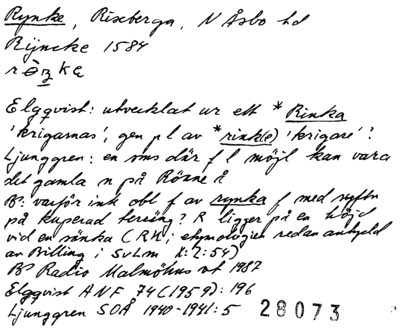 Rynke, Riseberga, N Åsbo hd
Rÿncke 1584
Elgqvist: utvecklat ur ett *Rinka
'krigarnas', gen pl av *rink(e) 'krigare'?
Ljunggren: en sms där f l möjl kan vara
det gamla n på Rönne å
B: varför ink obl f av rynka f med syftn
på kuperad terräng? R ligger på en höjd
vid en sänka (RK; etymologien redan antydd
av Billing i SvLm X:2:54)
B Radio Malmöhus vt 1987
Elgqvist ANF 74 (1959): 196
Ljunggren SOÅ 1940-1941: 5 28073